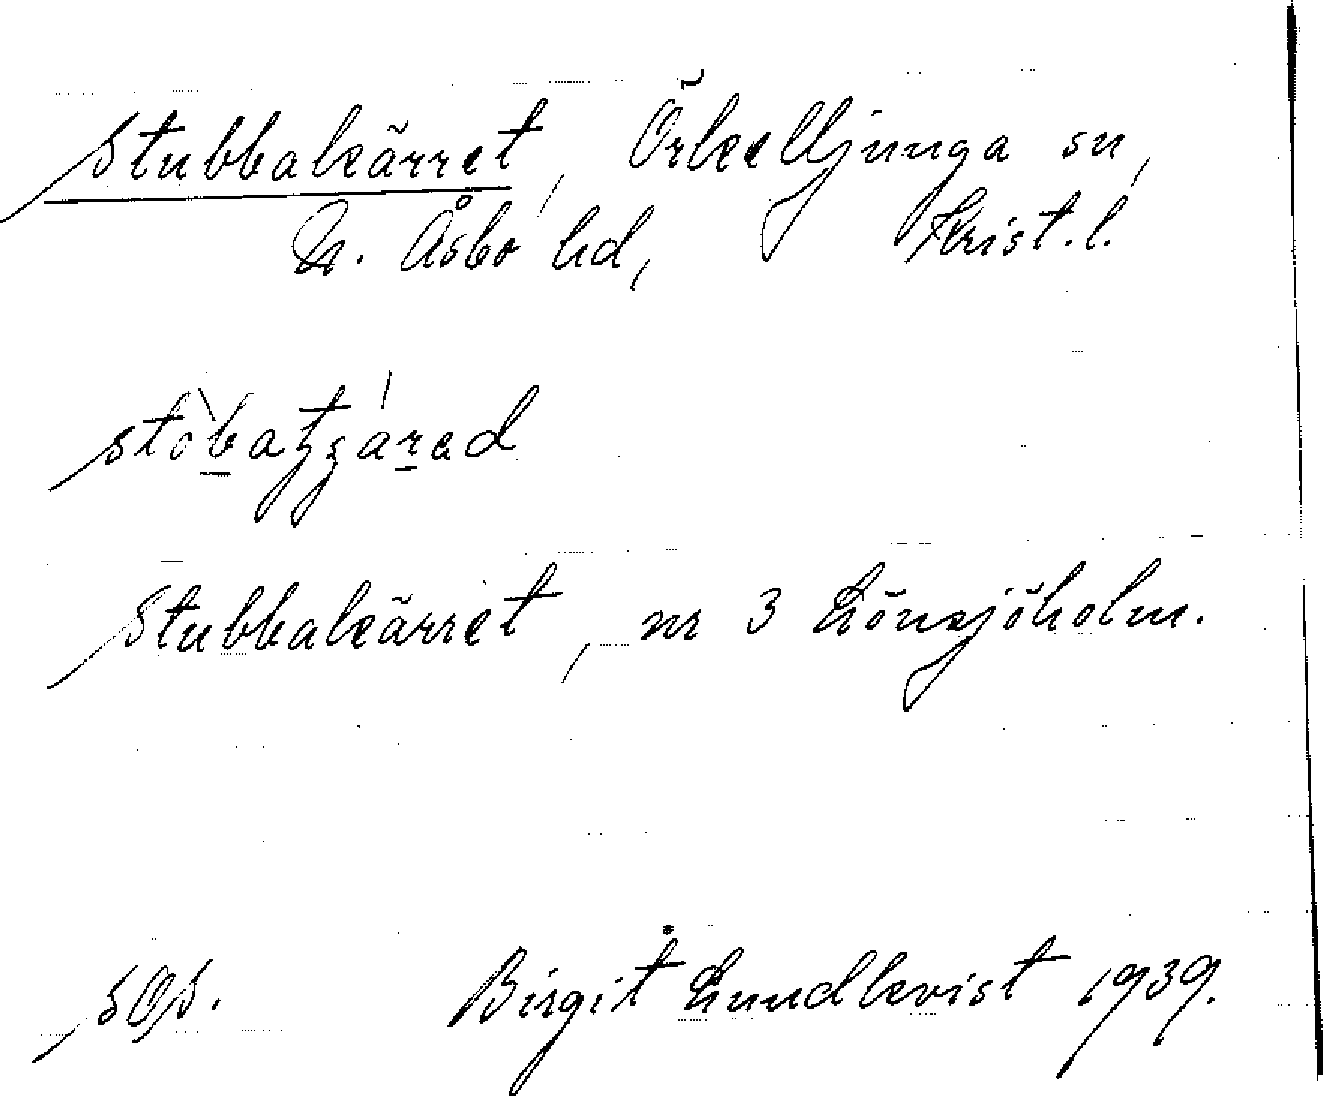 Stubbakärret, Örkelljunga sn,
N. Åsbo hd, Krist. l.
Stubbakärret, nr 3 Lönsjöholm.
Birgit Lundkvist 1939.